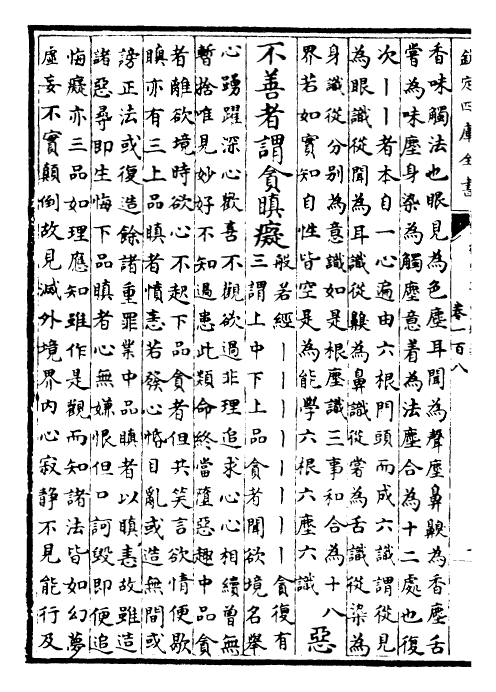 欽定四庫全書
卷一百八
香味觸法也眼見為色塵耳聞為聲塵鼻齅為香塵舌
嘗為味塵身染為觸塵意着為法塵合為十二處也復
次丨丨者本自一心遍由六根門頭而成六識謂從見
為眼識從聞為耳識從齅為鼻識從嘗為舌識從染為
身識從分別為意識如是根塵識三事和合為十八
界若如實知自性皆空是為能學六根六塵六識
惡
不善者謂貪瞋癡
般若經丨丨丨丨丨丨丨丨貪復有
三謂上中下上品貪者聞欲境名舉
心踴躍深心歡喜不觀欲過非理追求心心相續曾無
暫捨唯見妙好不知過患此類命終當墮惡趣中品貪
者離欲境時欲心不起下品貪者但共笑言欲情便歇
瞋亦有三上品瞋者憤恚若發心惛目亂或造無間或
謗正法或復造餘諸重罪業中品瞋者以瞋恚故雖造
諸惡尋即生悔下品瞋者心無嫌恨但口訶毀即便追
悔癡亦三品如理應知雖作是觀而知諸法皆如幻夢
虛妄不實顛倒故見滅外境界內心寂靜不見能行及